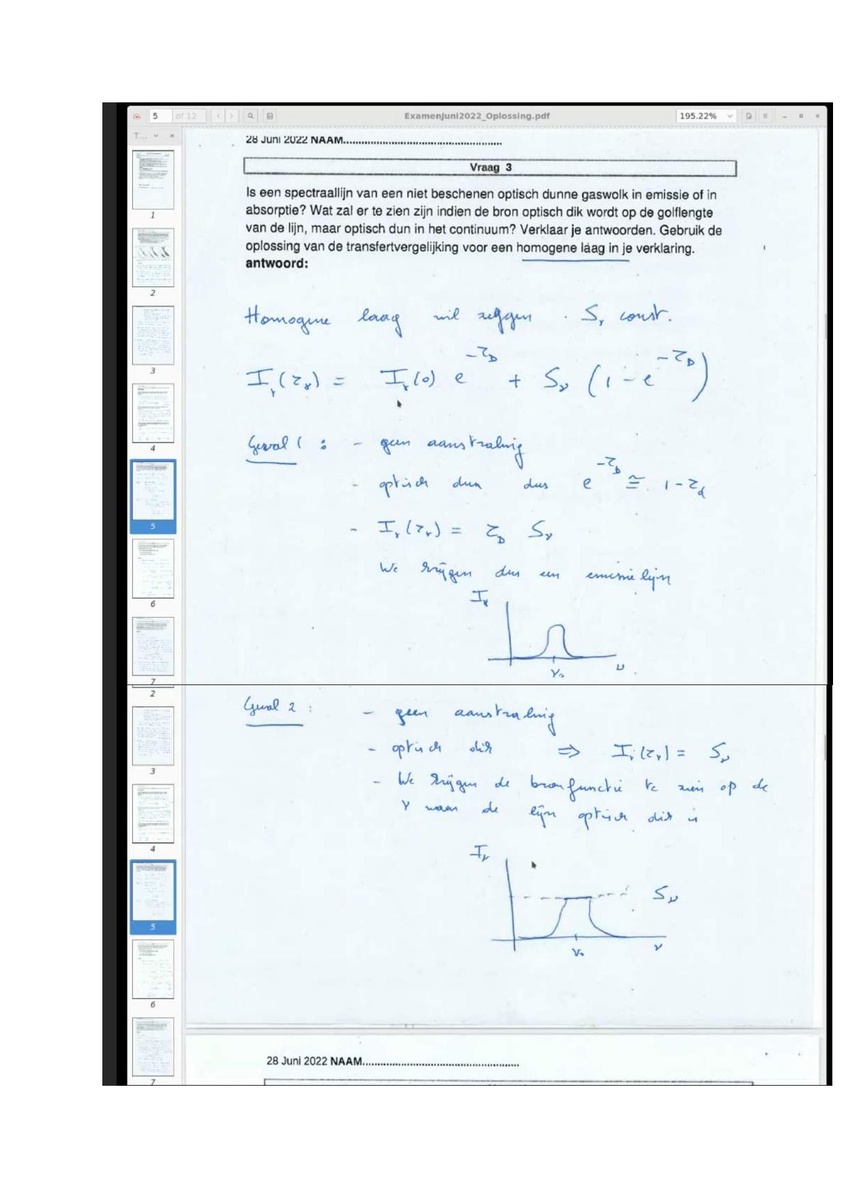 5 of 12 ExamenJuni2022_Oplossing.pdf 195.22%
T...
28 Juni 2022 NAAM......................................................
Vraag 3
Is een spectraallijn van een niet beschenen optisch dunne gaswolk in emissie of in
absorptie? Wat zal er te zien zijn indien de bron optisch dik wordt op de golflengte
van de lijn, maar optisch dun in het continuum? Verklaar je antwoorden. Gebruik de
oplossing van de transfertvergelijking voor een homogene laag in je verklaring.
antwoord:
Homogene laag wil zeggen . Sᵥ const.
Iᵥ(τᵥ) = Iᵥ(0) e^(-τ_D) + Sᵥ (1 - e^(-τ_D))
Geval 1 : - geen aanstraling
- optisch dun dus e^(-τ_D) ≅ 1 - τ_d
- Iᵥ(τᵥ) = τ_D Sᵥ
We krijgen dus een emissielijn
Iᵥ
ν₀ ν
Geval 2 : - geen aanstraling
- optisch dik ⇒ Iᵥ(τᵥ) = Sᵥ
- We krijgen de bronfunctie te zien op de
ν waar de lijn optisch dik is
Iᵥ
Sᵥ
ν₀ ν
28 Juni 2022 NAAM......................................................
1
2
3
4
5
6
7
2
3
4
5
6
7